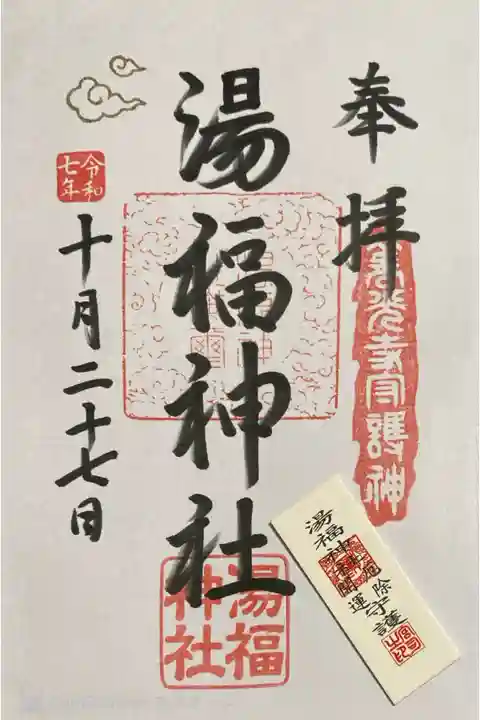 奉拝
善光寺守護神
湯福神社
湯福
神社
令和
七年
十月二十七日
湯福神社
厄除守護
開運